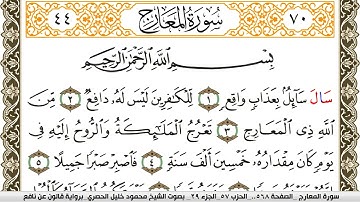 ٧٠ سُورَةُ المَعَارِجِ ٤٤
بِسْمِ اللَّهِ الرَّحْمَٰنِ الرَّحِيمِ
سَالَ سَآئِلُۢ بِعَذَابٍ وَاقِعٍ ١ لِّلْكَٰفِرِينَ لَيْسَ لَهُۥ دَافِعٌ ٢ مِّنَ
اَللَّهِ ذِے اِلْمَعَارِجِ ٣ تَعْرُجُ اُلْمَلَٰٓئِكَةُ وَالرُّوحُ إِلَيْهِ فِے
يَوْمٍ كَانَ مِقْدَارُهُۥ خَمْسِينَ أَلْفَ سَنَةٍ ٤ فَاصْبِرْ صَبْراً جَمِيلاً ٥
سورة المعارج .. الصفحة ٥٦٨... الحزب ٥٧ الجزء ٢٩ .. بصوت الشيخ محمود خليل الحصري برواية قالون عن نافع